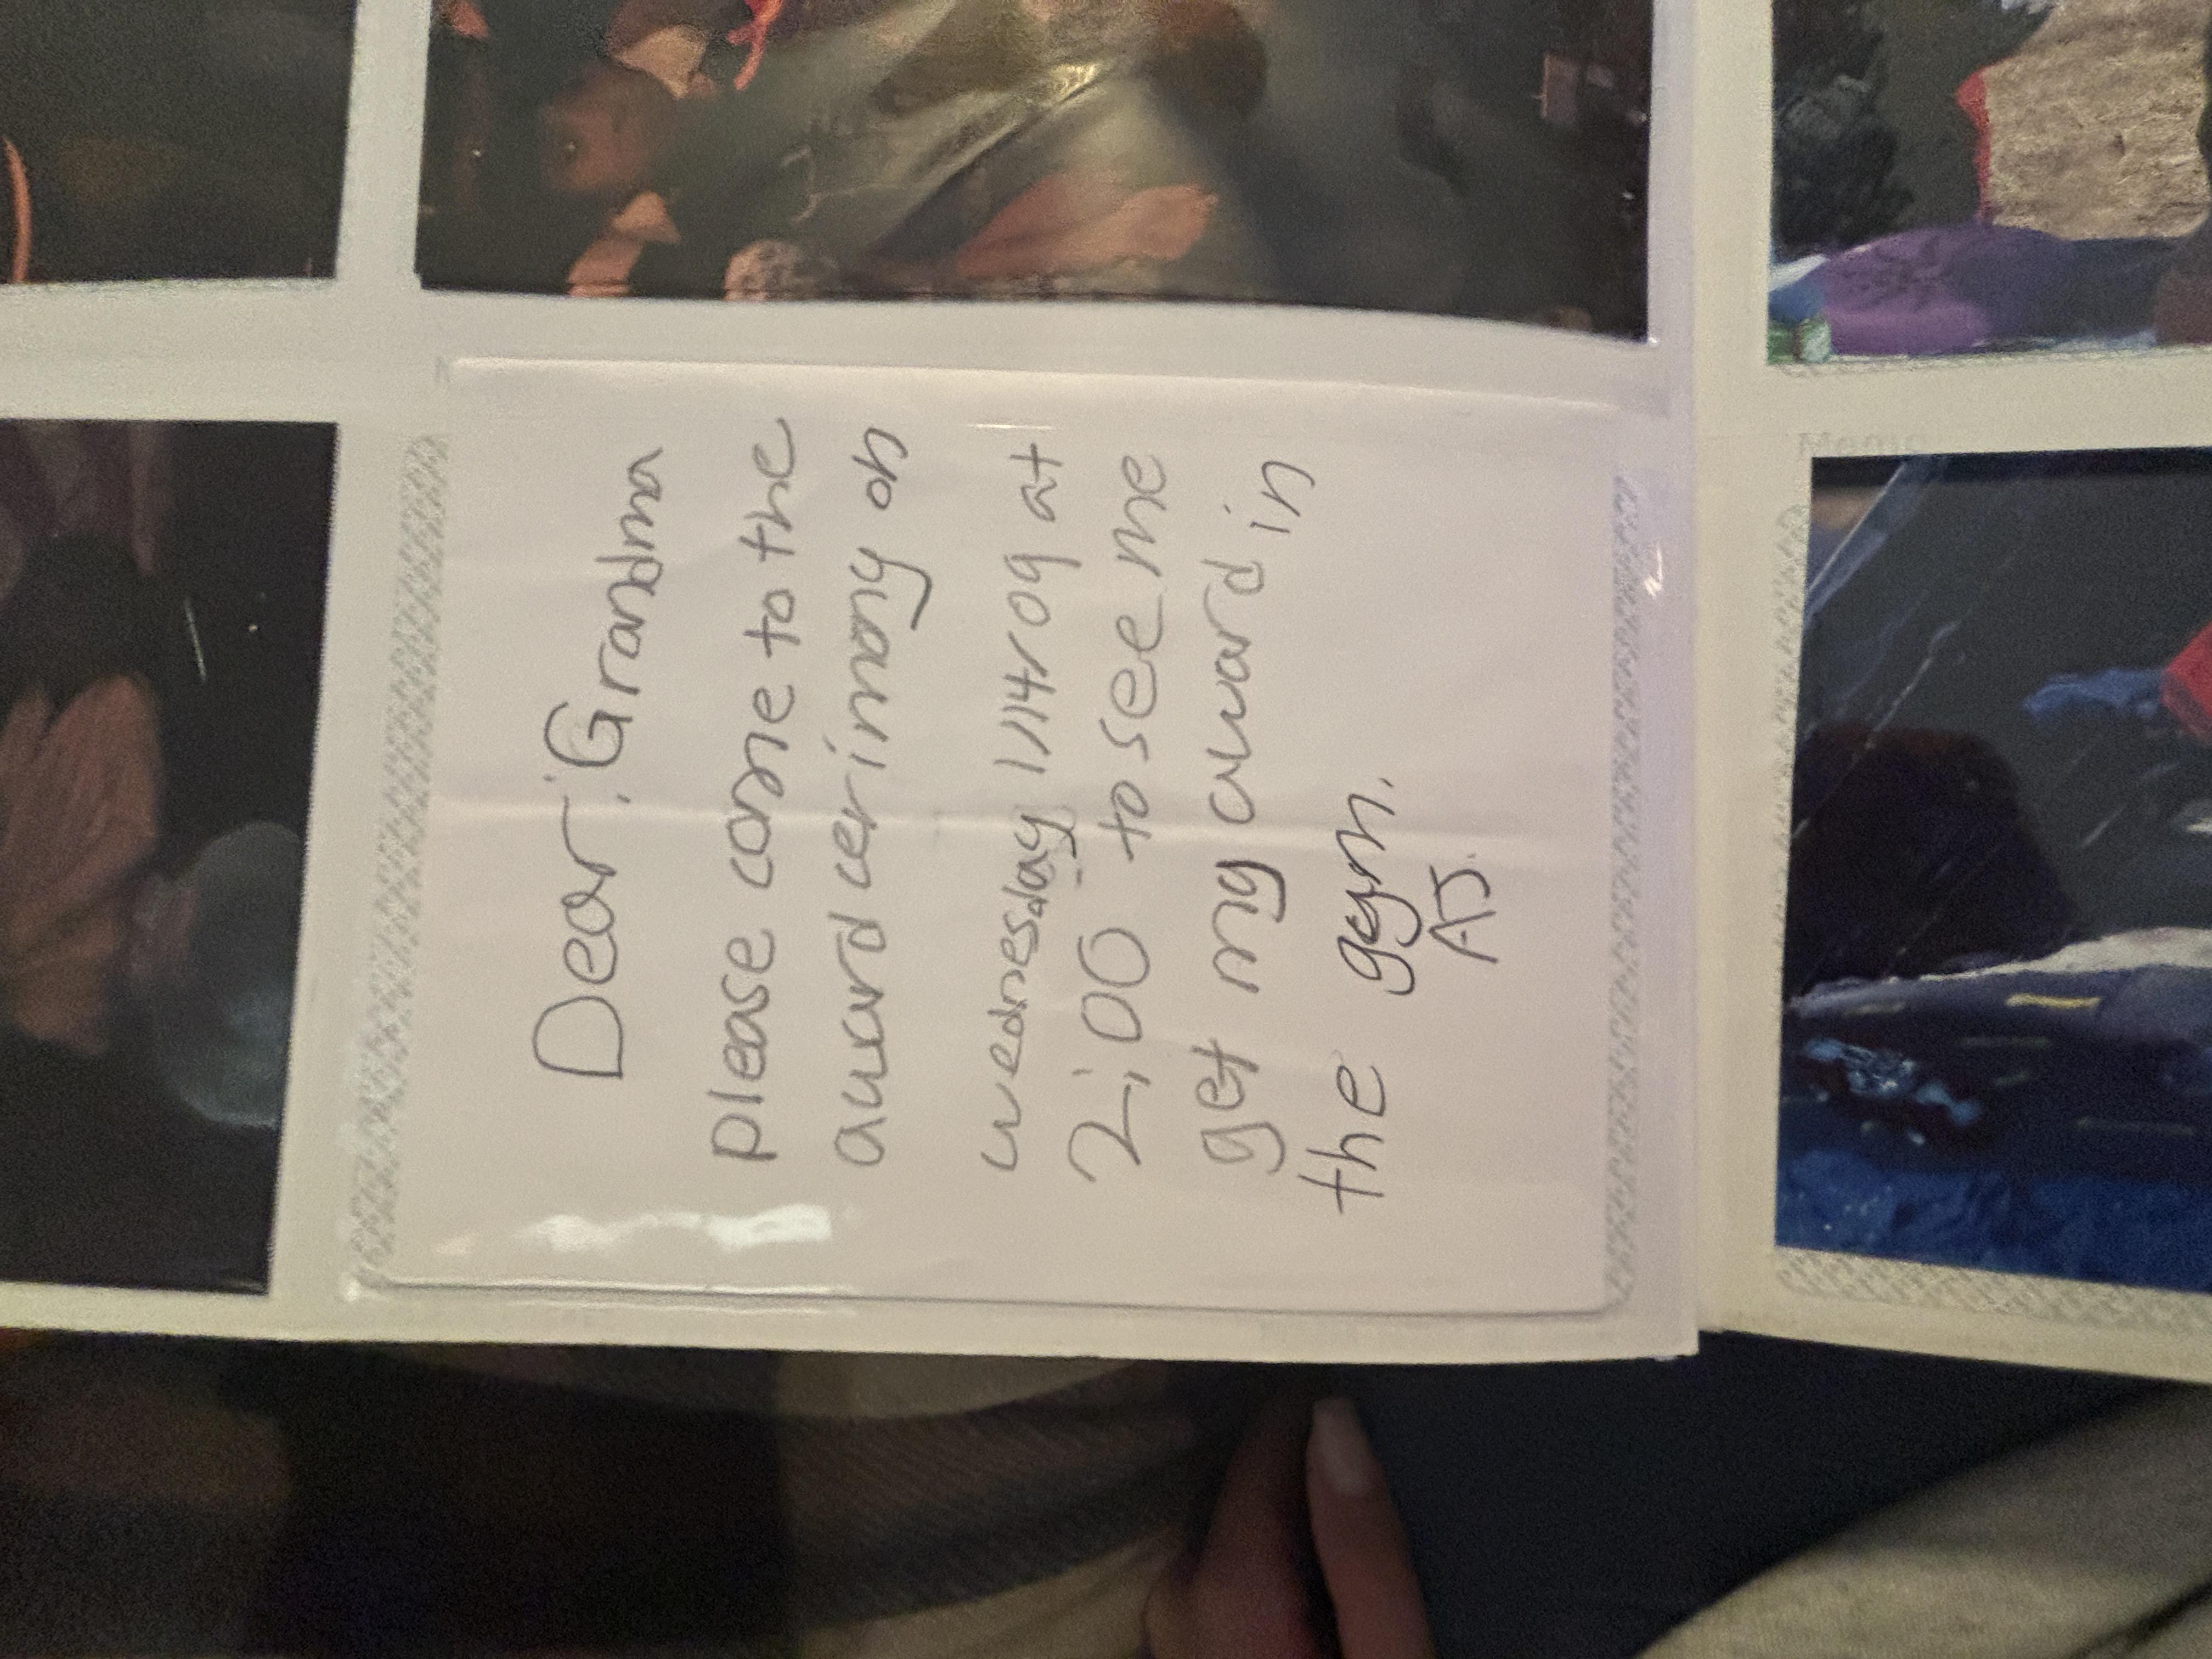 Dear, Grandma
please come to the
award cerimony on
wednesday 1/14/09 at
2:00 to see me
get my award in
the gym.
AJ.